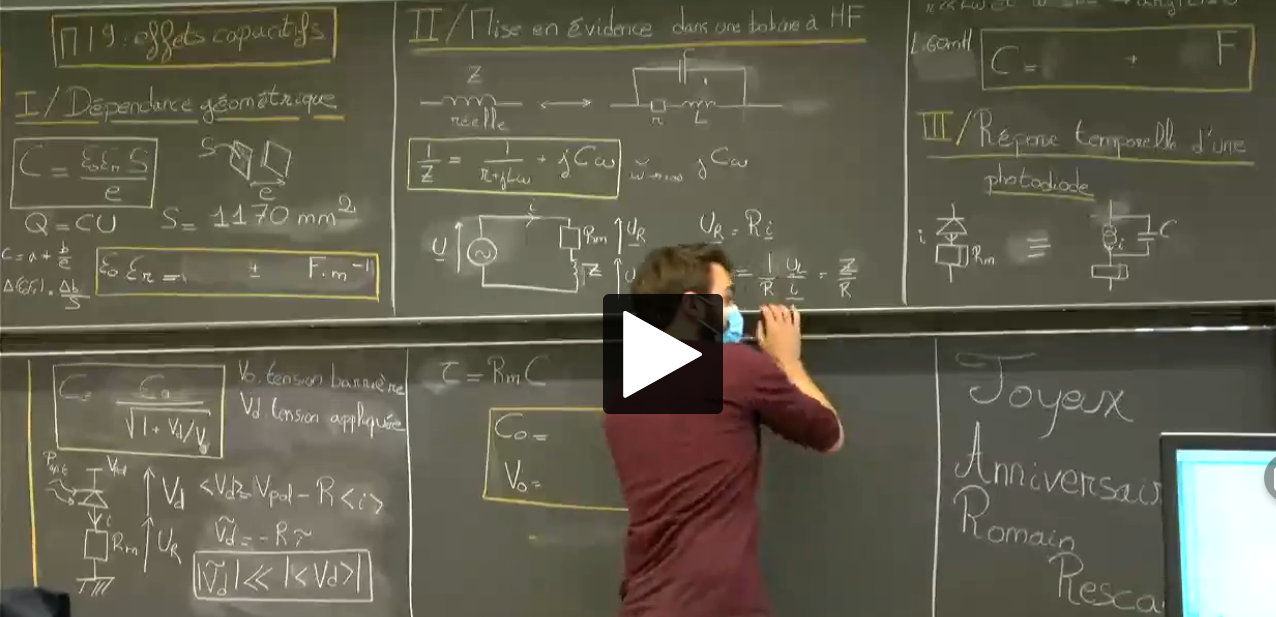 Π19: effets capacitifs
I/ Dépendance géométrique
C = ε₀εᵣ S / e
S
e
Q = CU
S = 1170 mm²
C = a + b/e
Δ(ε₀εᵣ) = Δb/S
ε₀ εᵣ = ± F.m⁻¹
II/ Mise en évidence dans une bobine à HF
Z
réelle
C
r L
1/Z = 1/(r+jLω) + jCω
ω→+∞ jCω
U
i
Rm
Z
U_R
U_R = R i
= 1/R U_L/i = Z/R
C = + F
III/ Réponse temporelle d'une
photodiode
i
Rm
=
i
C
C = C₀/√(1 + Vd/V₀)
V₀ tension barrière
Vd tension appliquée
Vpol
i
Rm
Vd
U_R
<Vd> = Vpol - R<i>
ṽd = -R ĩ
|ṽd| ≪ |<Vd>|
τ = Rm C
C₀ =
V₀ =
Joyeux
Anniversair
Romain
Resca